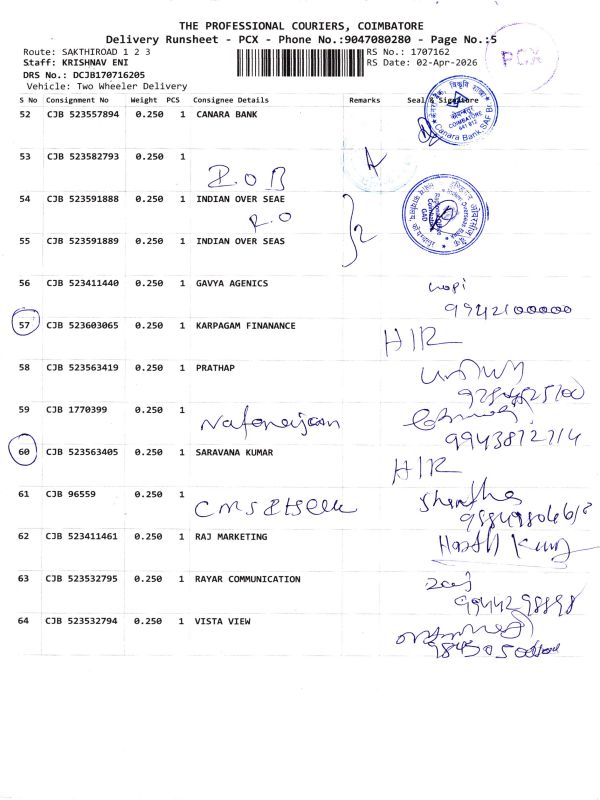 THE PROFESSIONAL COURIERS, COIMBATORE
Delivery Runsheet - PCX - Phone No.:9047080280 - Page No.:5
PCX
Route: SAKTHIROAD 1 2 3
RS No.: 1707162
Staff: KRISHNAV ENI
RS Date: 02-Apr-2026
DRS No.: DCJB170716205
Vehicle: Two Wheeler Delivery
S No Consignment No Weight PCS Consignee Details Remarks Seal & Signature
52 CJB 523557894 0.250 1 CANARA BANK
COIMBATORE
641 012
Canara Bank, SAF
53 CJB 523582793 0.250 1
I.O.B
54 CJB 523591888 0.250 1 INDIAN OVER SEAE
R.O
2
55 CJB 523591889 0.250 1 INDIAN OVER SEAS
56 CJB 523411440 0.250 1 GAVYA AGENICS
9942100000
57 CJB 523603065 0.250 1 KARPAGAM FINANANCE
H/R
58 CJB 523563419 0.250 1 PRATHAP
59 CJB 1770399 0.250 1
Natarajan
9943872714
60 CJB 523563405 0.250 1 SARAVANA KUMAR
H/R
61 CJB 96559 0.250 1
62 CJB 523411461 0.250 1 RAJ MARKETING
63 CJB 523532795 0.250 1 RAYAR COMMUNICATION
9944298898
64 CJB 523532794 0.250 1 VISTA VIEW